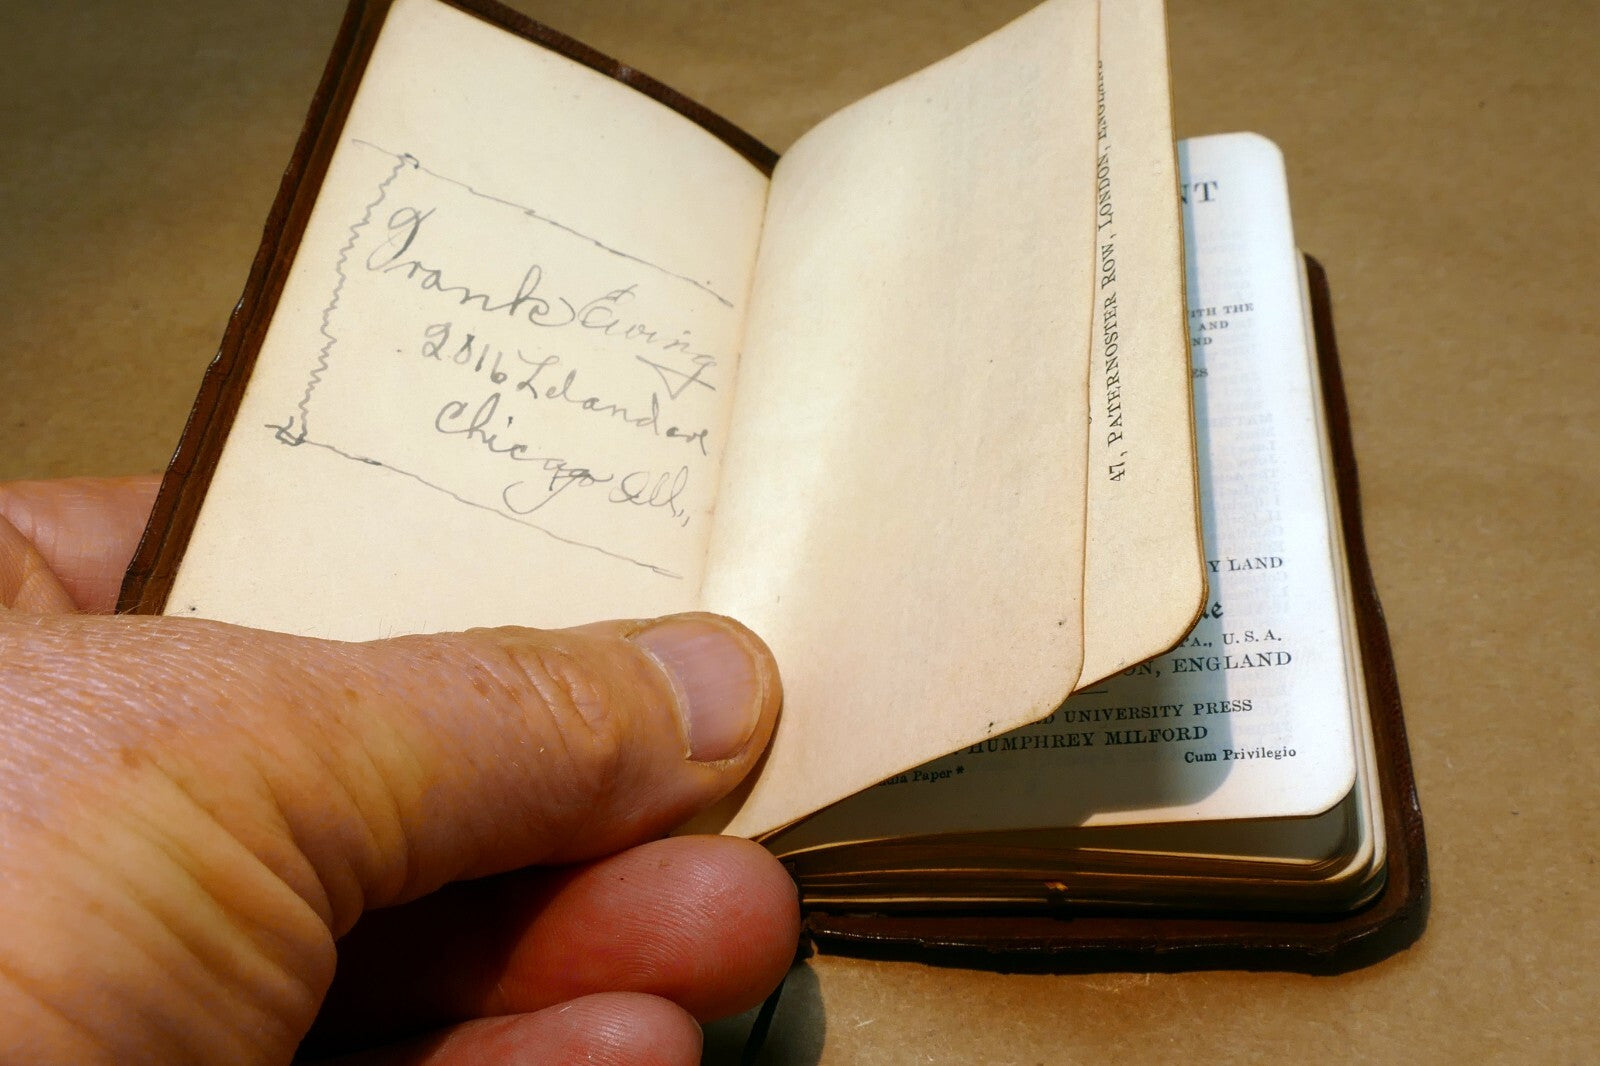 Frank Ewing
2816 Leland ave
Chicago Ill.,
47, PATERNOSTER ROW, LONDON, ENGLAND
NT
ITH THE
AND
ND
ES
Y LAND
PA., U.S.A.
ON, ENGLAND
UNIVERSITY PRESS
HUMPHREY MILFORD
Cum Privilegio
dia Paper *